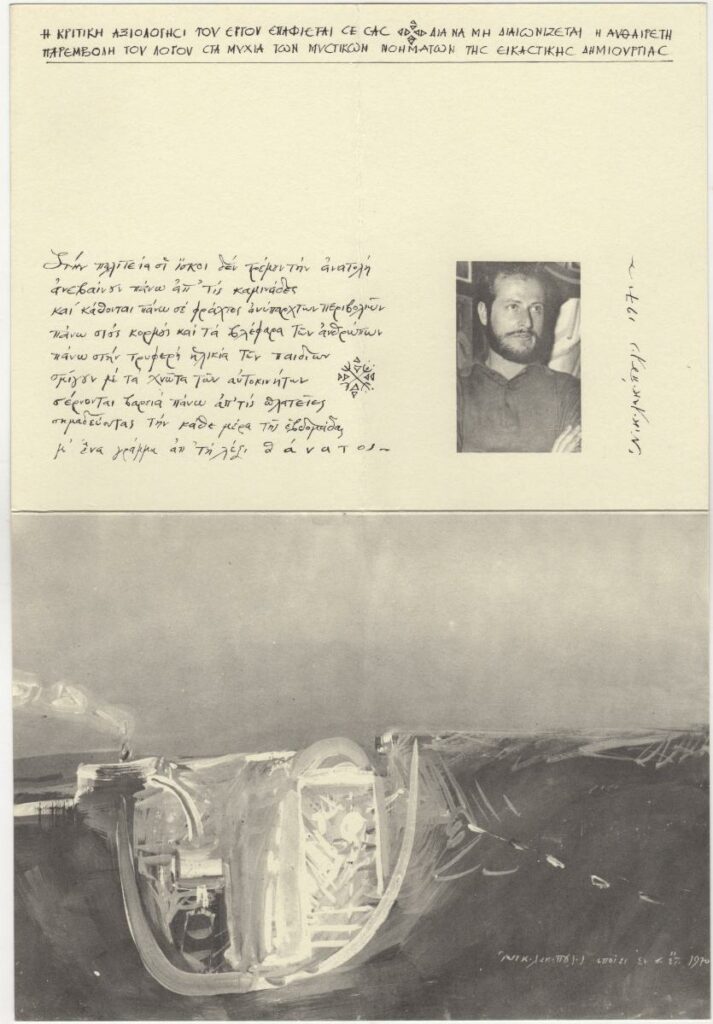 Η ΚΡΙΤΙΚΗ ΑΞΙΟΛΟΓΗCΙ ΤΟΥ ΕΡΓΟΥ ΕΠΑΦΙΕΤΑΙ CΕ CΑC ΔΙΑ ΝΑ ΜΗ ΔΙΑΙΩΝΙΖΕΤΑΙ Η ΑΥΘΑΙΡΕΤΗ
ΠΑΡΕΜΒΟΛΗ ΤΟΥ ΛΟΓΟΥ CΤΑ ΜΥΧΙΑ ΤΩΝ ΜΥCΤΙΚΩΝ ΝΟΗΜΑΤΩΝ ΤΗC ΕΙΚΑCΤΙΚΗC ΔΗΜΙΟΥΡΓΙΑC
Στήν πολιτεία οἱ ἴσκιοι δέν τρέμουν τήν ἀνατολή
ἀνεβαίνουν πάνω ἀπ' τίς καμινάδες
καί κάθονται πάνω σέ φράχτες ἀνύπαρχτων περιβολιῶν
πάνω στούς κορμούς καί τά βλέφαρα τῶν ἀνθρώπων
πάνω στήν τρυφερή ἡλικία τῶν παιδιῶν
σμίγουν μέ τά χνῶτα τῶν αὐτοκινήτων
σέρνονται βαρειά πάνω ἀπ' τίς πλατεῖες
σημαδεύοντας τήν κάθε μέρα τῆς ἑβδομάδας
μ' ἕνα γράμμα ἀπ' τή λέξι θάνατος
1970